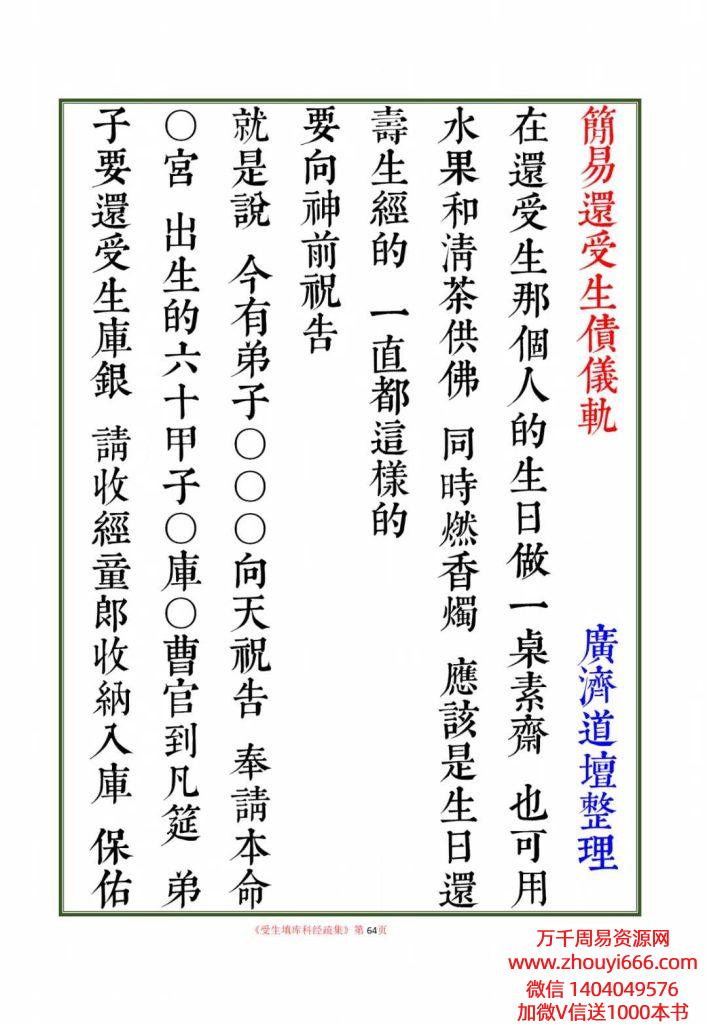 簡易還受生債儀軌 廣濟道壇整理
在還受生那個人的生日做一桌素齋 也可用
水果和清茶供佛 同時燃香燭 應該是生日還
壽生經的 一直都這樣的
要向神前祝告
就是說 今有弟子〇〇〇向天祝告 奉請本命
〇宮 出生的六十甲子〇庫〇曹官到凡筵 弟
子要還受生庫銀 請收經童郎收納入庫 保佑
《受生填库科经疏集》第 64页
万千周易资源网
www.zhouyi666.com
微信 1404049576
加微V信送1000本书